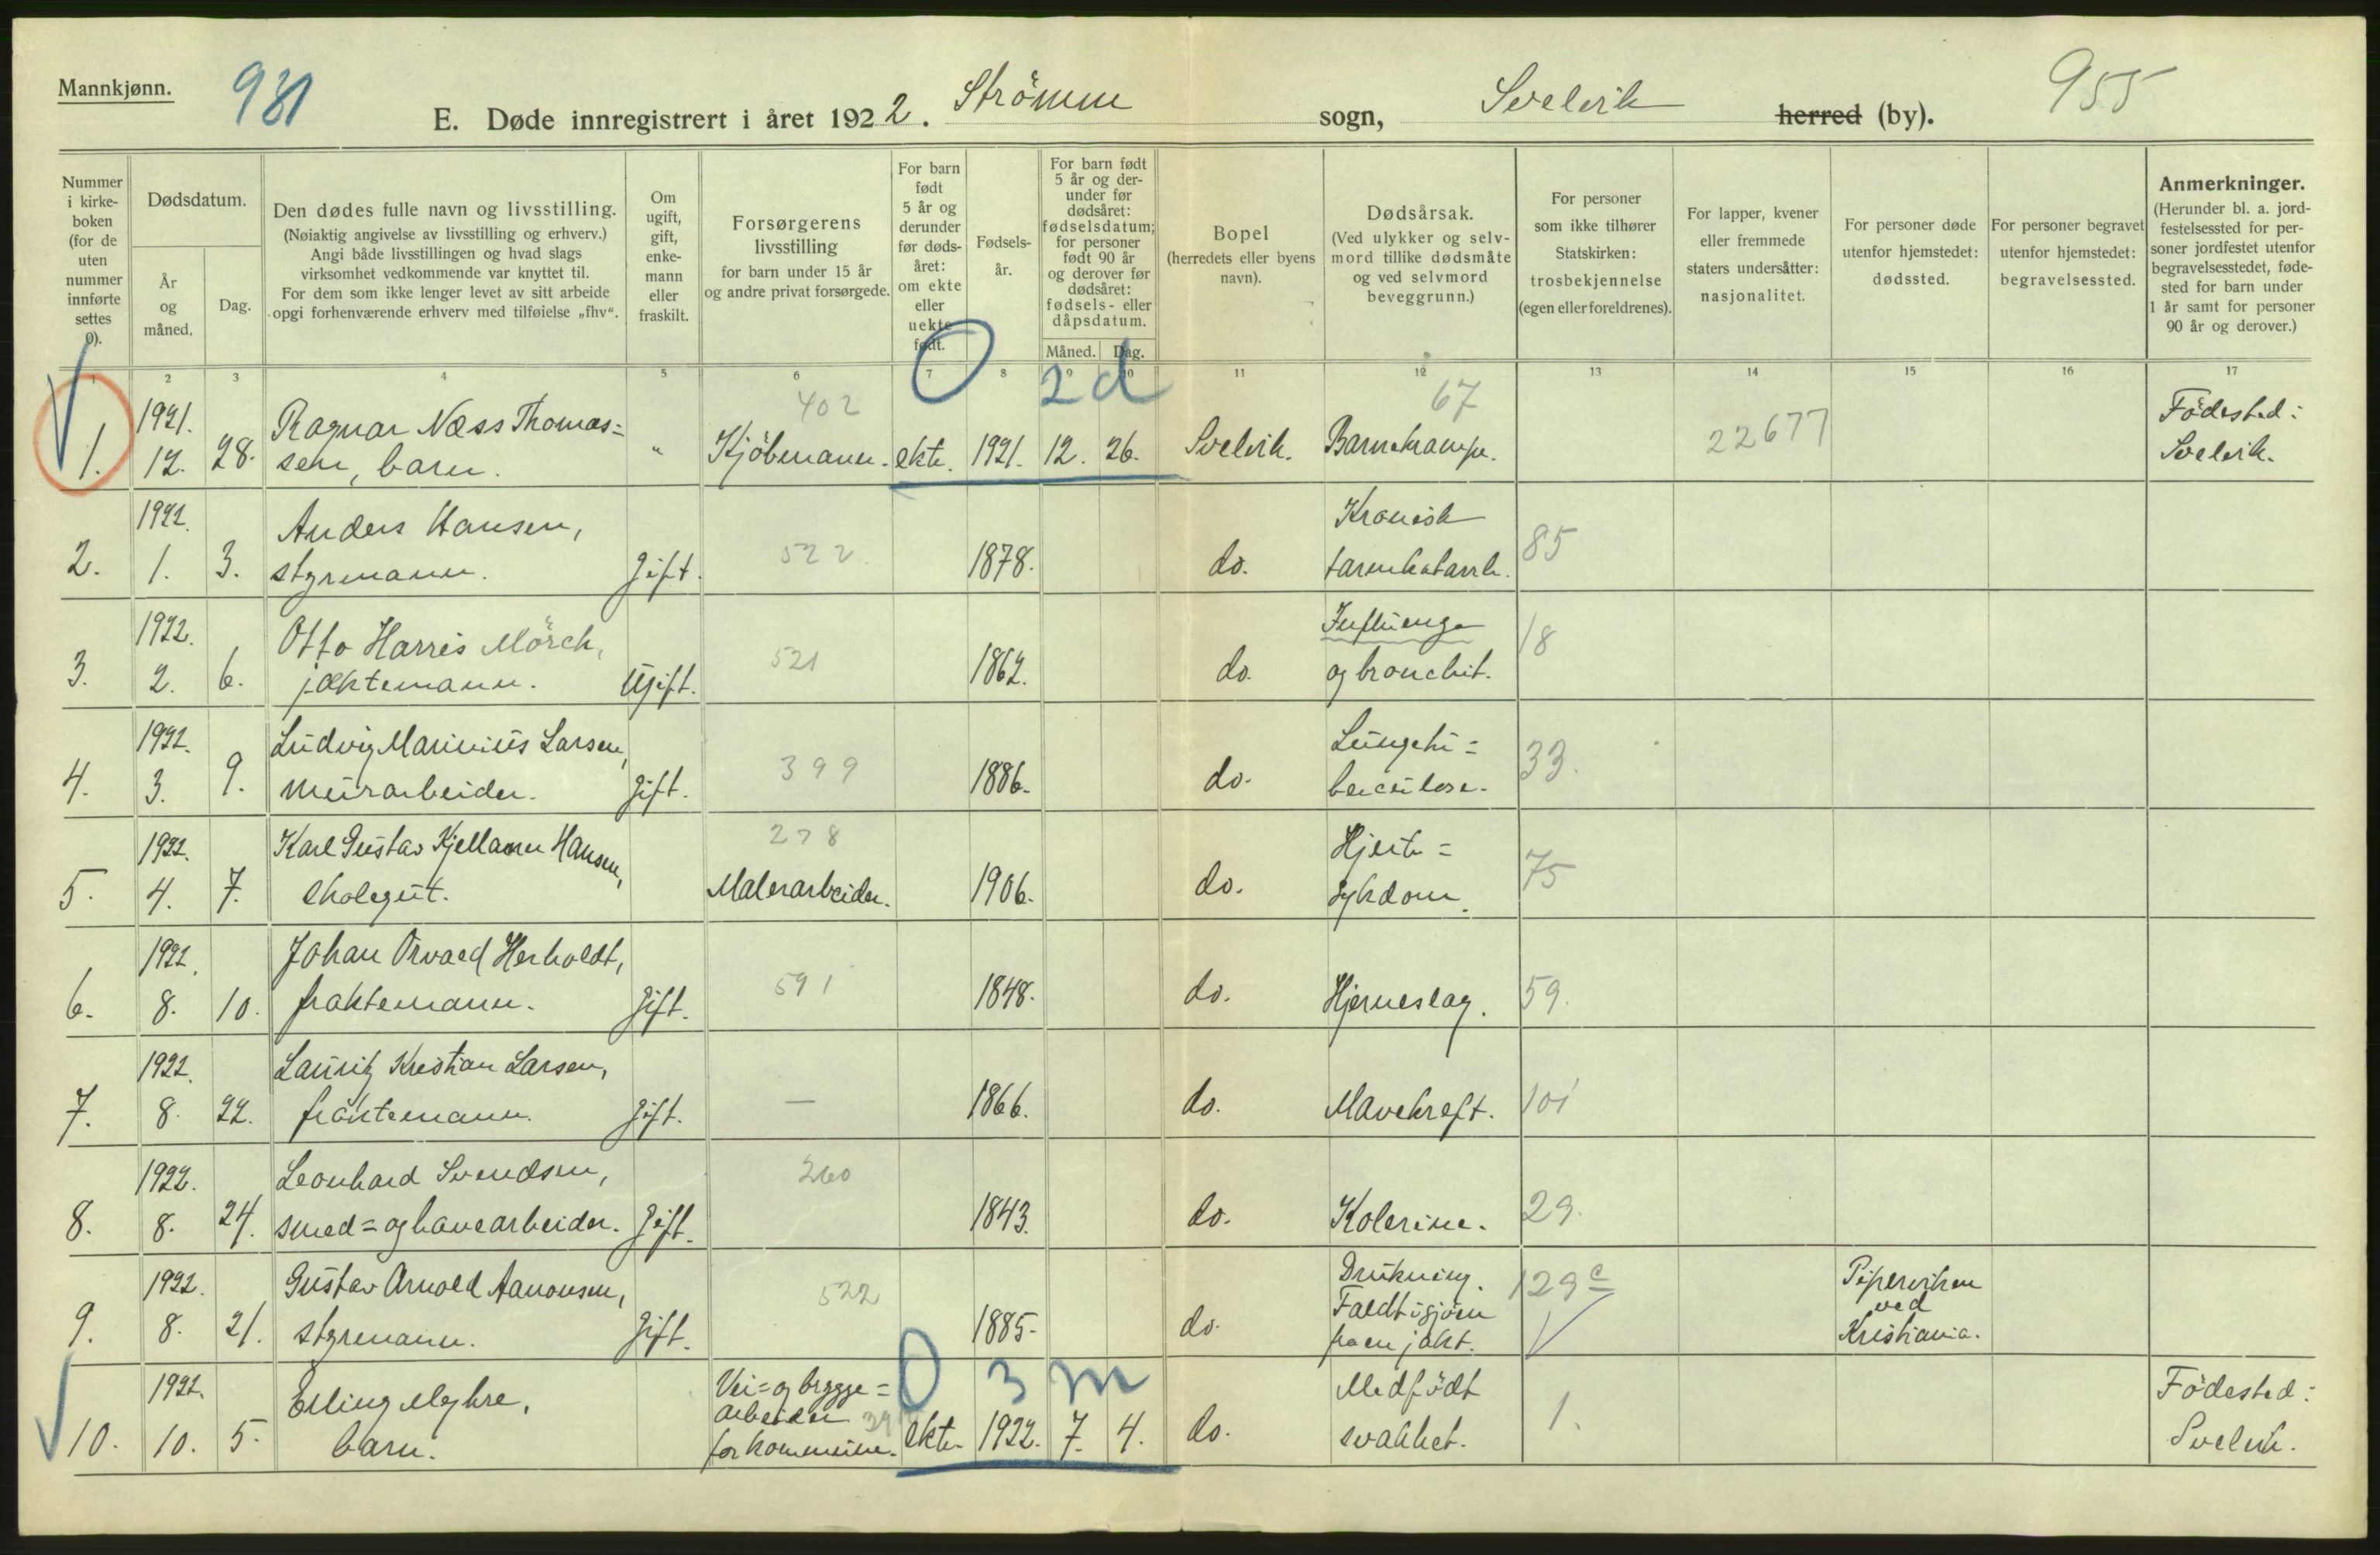 Mannkjønn.
931
E. Døde innregistrert i året 1922. Strömm sogn, Svelvik herred (by).
955
Nummer i kirke- boken (for de uten nummer innførte settes 0).
Dødsdatum.
År og måned.
Dag.
Den dødes fulle navn og livsstilling.
(Nøiaktig angivelse av livsstilling og erhverv.)
Angi både livsstillingen og hvad slags
virksomhet vedkommende var knyttet til.
For dem som ikke lenger levet av sitt arbeide
opgi forhenværende erhverv med tilføielse „fhv“.
Om ugift, gift, enke- mann eller fraskilt.
Forsørgerens
livsstilling
for barn under 15 år
og andre privat forsørgede.
For barn født 5 år og derunder før døds- året: om ekte eller uekte født.
Fødsels- år.
For barn født 5 år og der- under før dødsåret: fødselsdatum; for personer født 90 år og derover før dødsåret: fødsels- eller dåpsdatum.
Måned. Dag.
Bopel
(herredets eller byens navn).
Dødsårsak.
(Ved ulykker og selv-
mord tillike dødsmåte
og ved selvmord
beveggrunn.)
For personer
som ikke tilhører
Statskirken:
trosbekjennelse
(egen eller foreldrenes).
For lapper, kvener
eller fremmede
staters undersåtter:
nasjonalitet.
For personer døde
utenfor hjemstedet:
dødssted.
For personer begravet
utenfor hjemstedet:
begravelsessted.
Anmerkninger.
(Herunder bl. a. jord-
festelsessted for per-
soner jordfestet utenfor
begravelsesstedet, føde-
sted for barn under
1 år samt for personer
90 år og derover.)
1 2 3 4 5 6 7 8 9 10 11 12 13 14 15 16 17
0 2 d
1921. Ragnar Næss Thomas= 402 67 Födested:
1. 12. 28. sen, barn. " Kjöbmann. ekte. 1921. 12. 26. Svelvik. Barnekrampe. 22677 Svelvik.
1922. Anders Hansen, Kronisk
2. 1. 3. styrmann. Gift. 522 1878. do. tarmkatarrh. 85
1922. Otto Harris Mörch, Influenza
3. 2. 6. jæktemann. Ugift. 521 1862. do. og bronchit. 18
1922. Ludvig Marinius Larsen, Lungetu=
4. 3. 9. murarbeider. Gift. 399 1886. do. berculose. 33.
1922. Karl Gustav Kjellaner Hansen, 278 Hjerte=
5. 4. 7. skolegut. Malerarbeider. 1906. do. sykdom. 75
1922. Johan Orvard Herholdt,
6. 8. 10. fraktemann. Gift. 591 1848. do. Hjerneslag. 59.
1922. Lauritz Kristian Larsen,
7. 8. 22. fraktemann. Gift. — 1866. do. Mavekreft. 101
1922. Leonhard Svendsen, 260
8. 8. 24. smed= og havearbeider. Gift. 1843. do. Kolerine. 29.
1922. Gustav Arnold Aanonsen, 522 Drukning. 129 c Piperviken
9. 8. 21. styrmann. Gift. 1885. do. Faldt i sjöen ved
fra en jakt. Kristiania.
0 3 m
1922. Erling Myhre, Vei= og brygge= Medfödt Födested:
10. 10. 5. barn. arbeider for kommune. ekte. 1922. 7. 4. do. svakhet. 1. Svelvik.